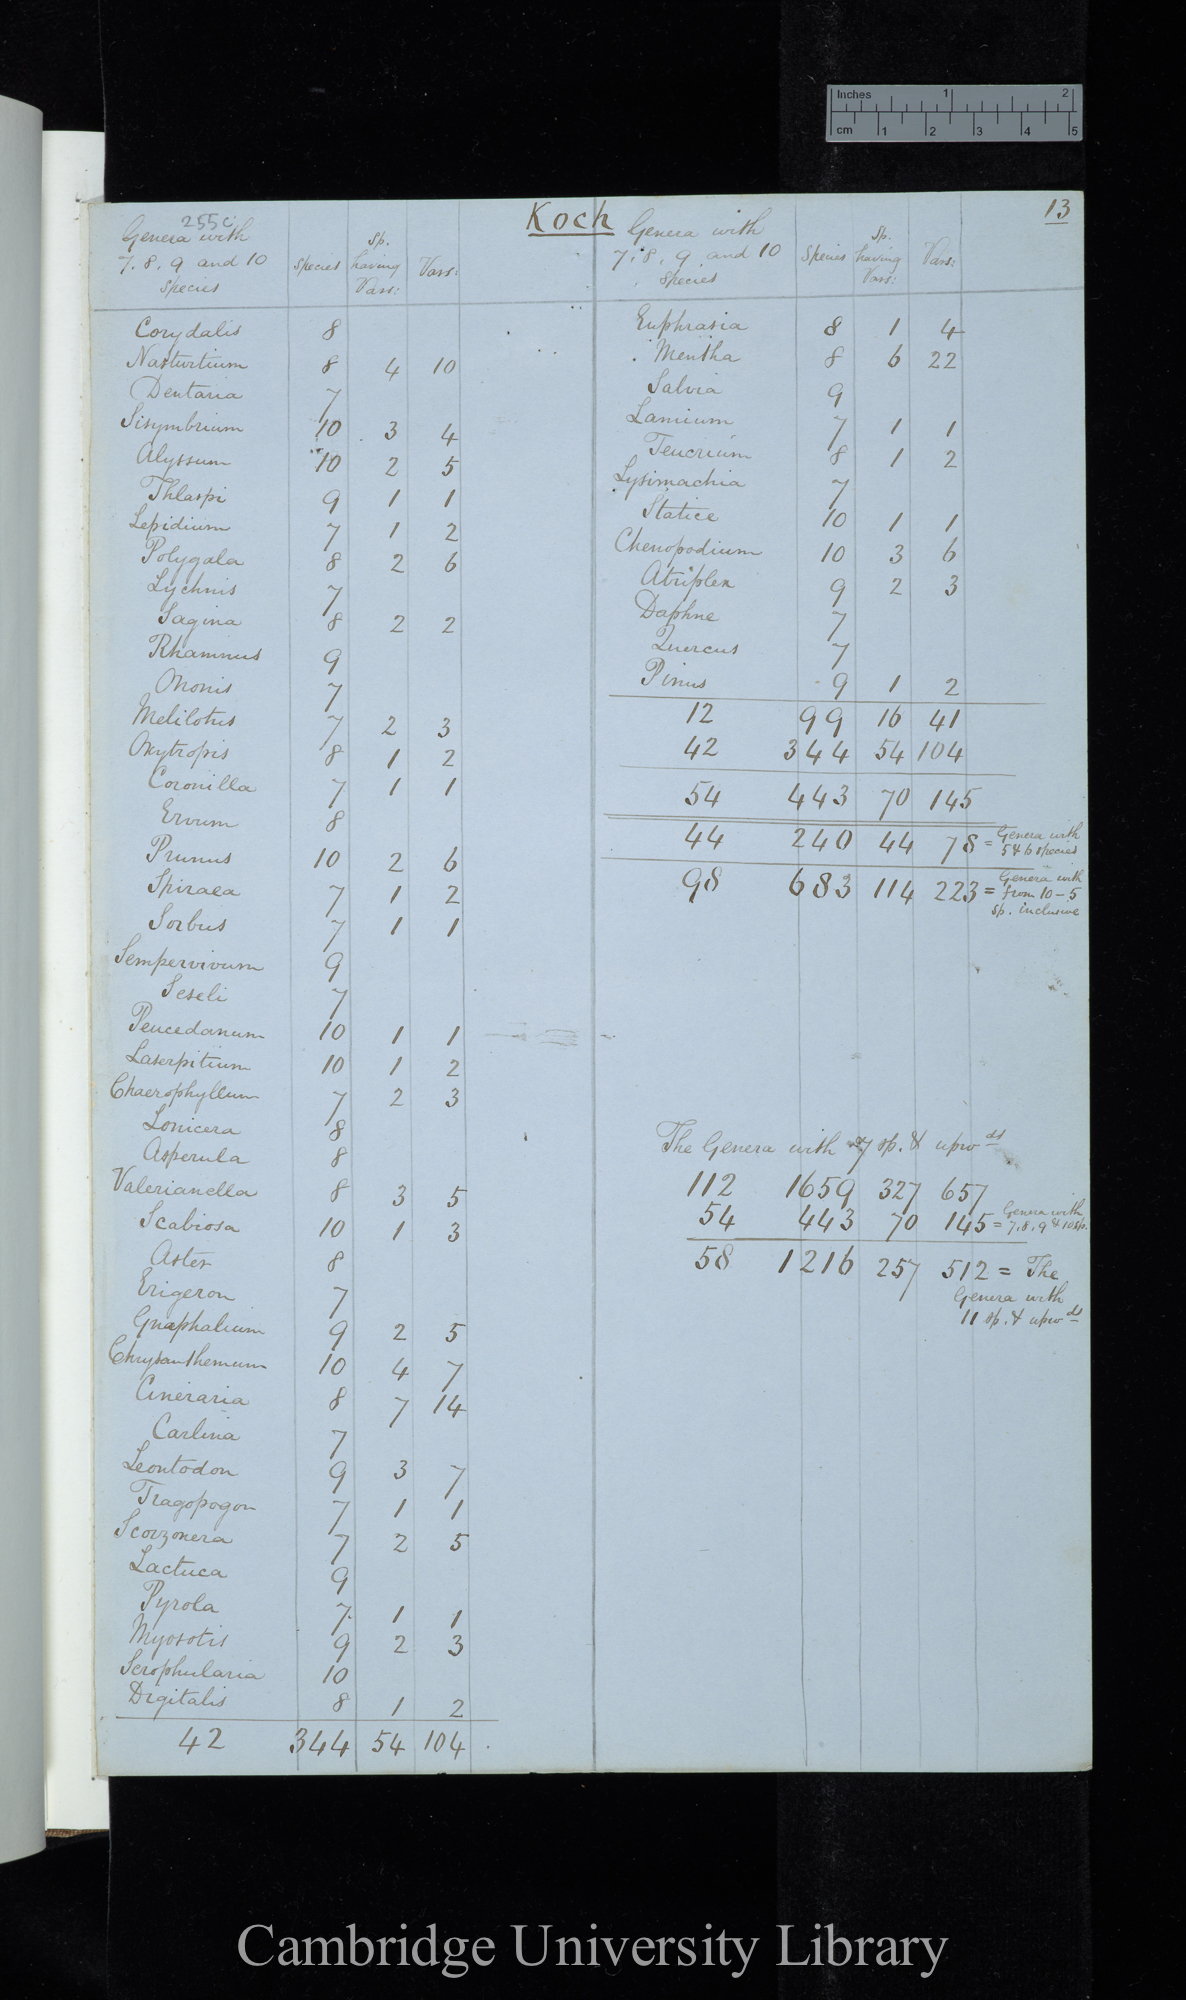 Inches 1 2
cm 1 2 3 4 5
Koch
13
255c
Genera with
7. 8. 9 and 10
species
Species
Sp.
having
Vars:
Vars:
Corydalis 8
Nasturtium 8 4 10
Dentaria 7
Sisymbrium 10 3 4
Alyssum 10 2 5
Thlaspi 9 1 1
Lepidium 7 1 2
Polygala 8 2 6
Lychnis 7
Sagina 8 2 2
Rhamnus 9
Ononis 7
Melilotus 7 2 3
Oxytropis 8 1 2
Coronilla 7 1 1
Ervum 8
Prunus 10 2 6
Spiraea 7 1 2
Sorbus 7 1 1
Sempervivum 9
Seseli 7
Peucedanum 10 1 1
Laserpitium 10 1 2
Chaerophyllum 7 2 3
Lonicera 8
Asperula 8
Valerianella 8 3 5
Scabiosa 10 1 3
Aster 8
Erigeron 7
Gnaphalium 9 2 5
Chrysanthemum 10 4 7
Cineraria 8 7 14
Carlina 7
Leontodon 9 3 7
Tragopogon 7 1 1
Scorzonera 7 2 5
Lactuca 9
Pyrola 7 1 1
Myosotis 9 2 3
Scrophularia 10
Digitalis 8 1 2
42 344 54 104
Genera with
7. 8. 9 and 10
species
Species
Sp.
having
Vars:
Vars:
Euphrasia 8 1 4
Mentha 8 6 22
Salvia 9
Lamium 7 1 1
Teucrium 8 1 2
Lysimachia 7
Statice 10 1 1
Chenopodium 10 3 6
Atriplex 9 2 3
Daphne 7
Quercus 7
Pinus 9 1 2
12 99 16 41
42 344 54 104
54 443 70 145
44 240 44 78 = Genera with
5 & 6 species
98 683 114 223 = Genera with
from 10–5
sp. inclusive
The Genera with 7 sp. & upwds
112 1659 327 657
54 443 70 145 = Genera with
7. 8. 9 & 10 sp.
58 1216 257 512 = The
Genera with
11 sp. & upwds
Cambridge University Library